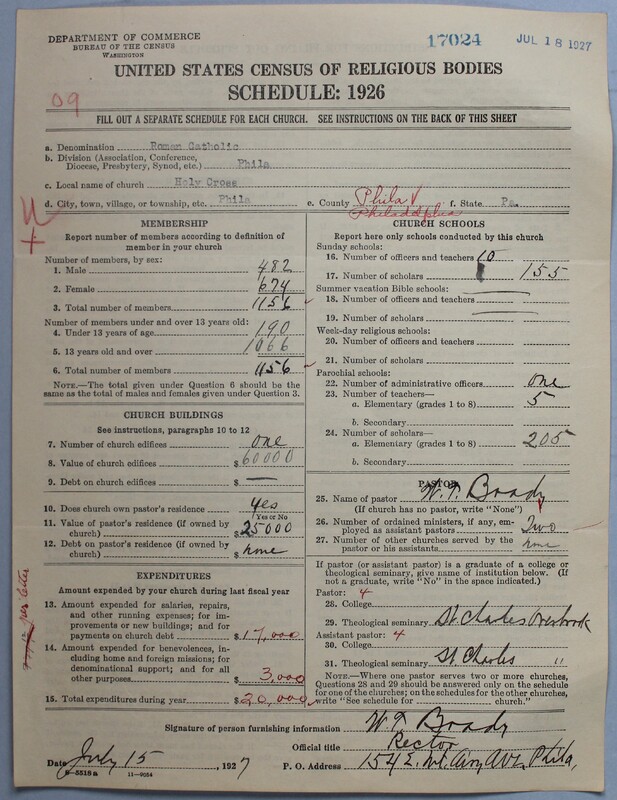 DEPARTMENT OF COMMERCE
BUREAU OF THE CENSUS
WASHINGTON
17024
JUL 18 1927
UNITED STATES CENSUS OF RELIGIOUS BODIES
SCHEDULE: 1926
09
FILL OUT A SEPARATE SCHEDULE FOR EACH CHURCH. SEE INSTRUCTIONS ON THE BACK OF THIS SHEET
a. Denomination Roman Catholic
b. Division (Association, Conference,
Diocese, Presbytery, Synod, etc.) Phila
c. Local name of church Holy Cross
d. City, town, village, or township, etc. Phila e. County Phila f. State Pa.
Philadelphia
MEMBERSHIP
Report number of members according to definition of
member in your church
Number of members, by sex:
1. Male 482
2. Female 674
3. Total number of members 1156
Number of members under and over 13 years old:
4. Under 13 years of age 190
5. 13 years old and over 1066
6. Total number of members 1156
NOTE.—The total given under Question 6 should be the
same as the total of males and females given under Question 3.
CHURCH BUILDINGS
See instructions, paragraphs 10 to 12
7. Number of church edifices one
8. Value of church edifices $60000
9. Debt on church edifices $ —
10. Does church own pastor's residence yes
Yes or No
11. Value of pastor's residence (if owned by
church) $25000
12. Debt on pastor's residence (if owned by
church) $ none
EXPENDITURES
Amount expended by your church during last fiscal year
13. Amount expended for salaries, repairs,
and other running expenses; for im-
provements or new buildings; and for
payments on church debt $17,000
14. Amount expended for benevolences,
including home and foreign missions; for
denominational support; and for all
other purposes $3,000
15. Total expenditures during year $20,000
per letter
CHURCH SCHOOLS
Report here only schools conducted by this church
Sunday schools:
16. Number of officers and teachers 10
17. Number of scholars 155
Summer vacation Bible schools:
18. Number of officers and teachers
19. Number of scholars
Week-day religious schools:
20. Number of officers and teachers
21. Number of scholars
Parochial schools:
22. Number of administrative officers one
23. Number of teachers—
a. Elementary (grades 1 to 8) 5
b. Secondary
24. Number of scholars—
a. Elementary (grades 1 to 8) 205
b. Secondary
PASTOR
25. Name of pastor W. T. Brady
(If church has no pastor, write "None")
26. Number of ordained ministers, if any, em-
ployed as assistant pastors Two
27. Number of other churches served by the
pastor or his assistants none
If pastor (or assistant pastor) is a graduate of a college or
theological seminary, give name of institution below. (If
not a graduate, write "No" in the space indicated.)
Pastor: 4
28. College
29. Theological seminary St Charles Overbrook
Assistant pastor: 4
30. College
31. Theological seminary St Charles "
NOTE.—Where one pastor serves two or more churches,
Questions 28 and 29 should be answered only on the schedule
for one of the churches; on the schedules for the other churches,
write "See schedule for church."
Signature of person furnishing information W T Brady
Official title Rector
Date July 15, 1927 P. O. Address 154 E. Mt. Airy Ave, Phila,
8-5518a 11-9054